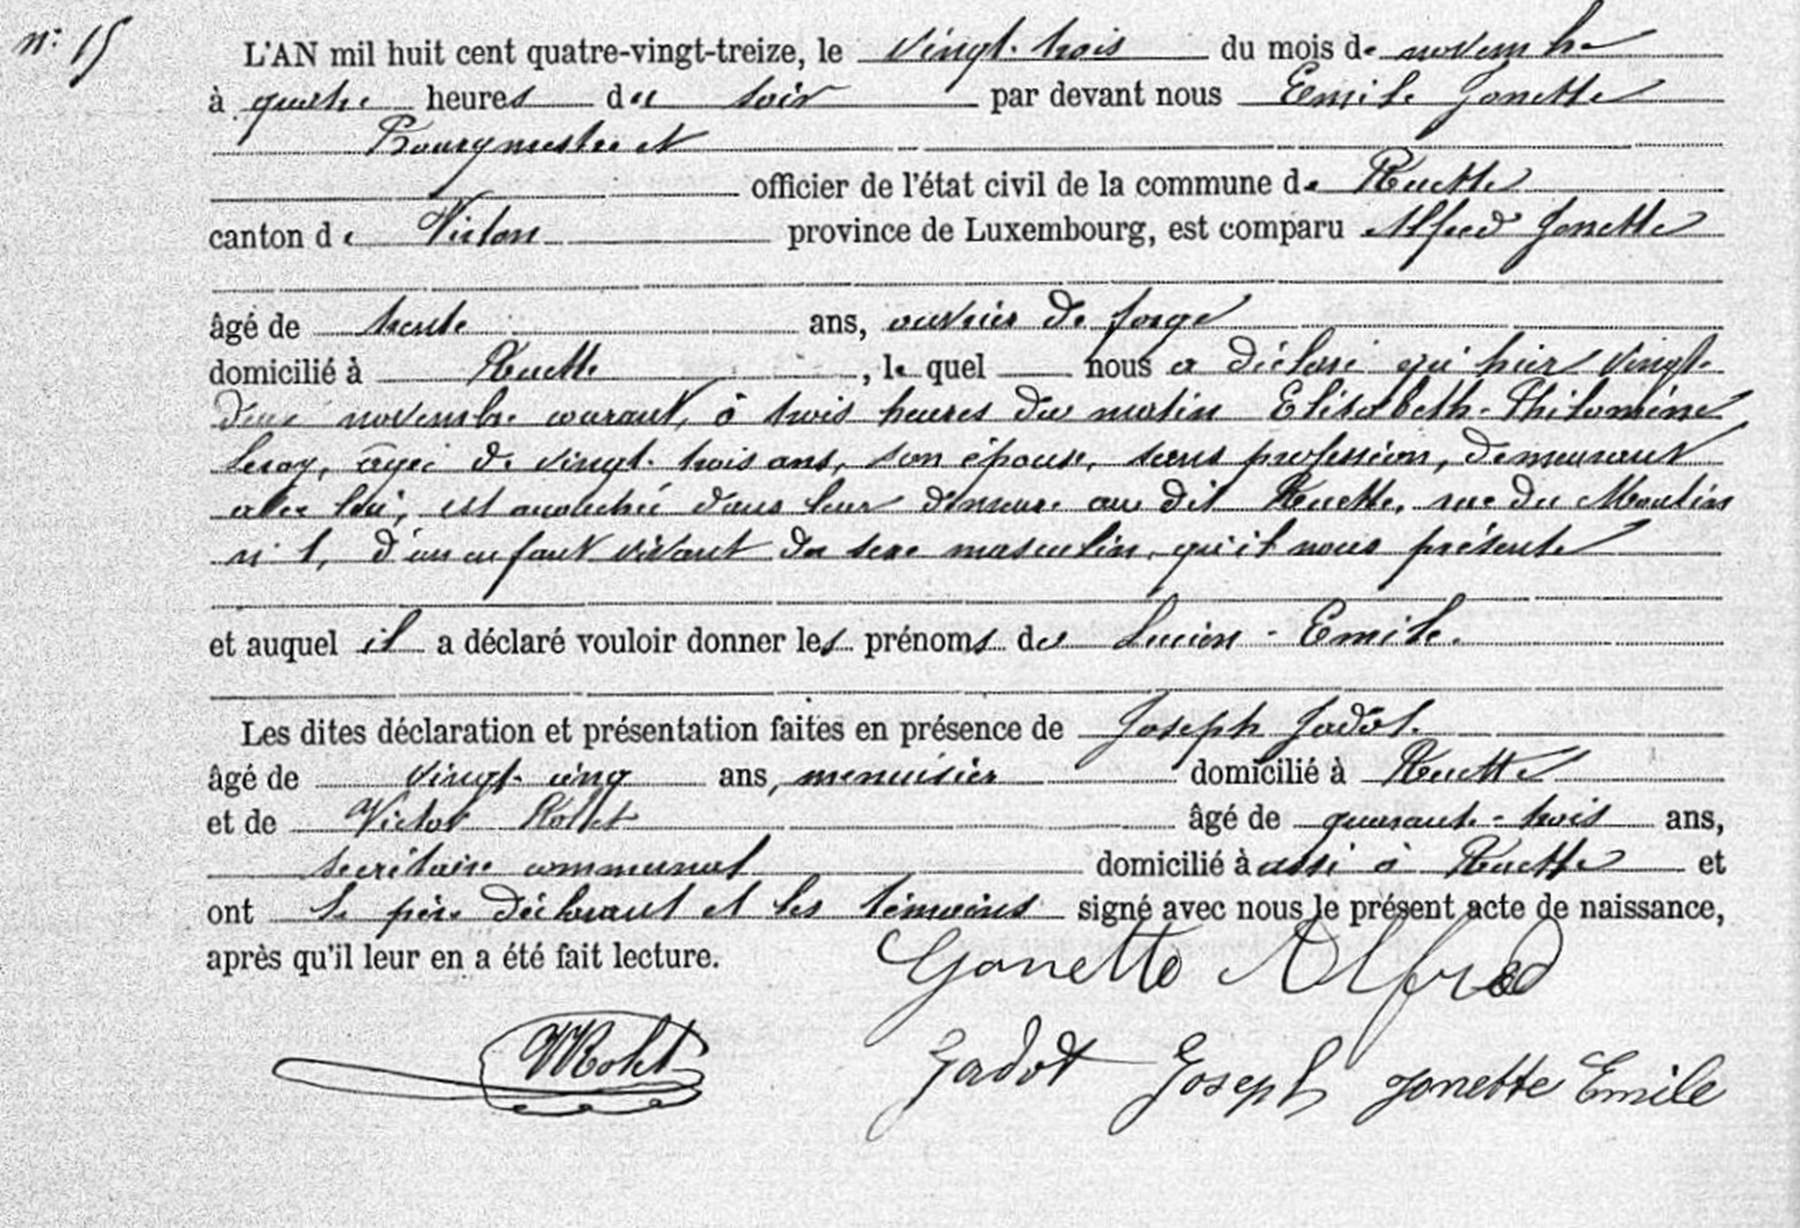 n° 15
L'AN mil huit cent quatre-vingt-treize, le vingt-trois du mois de novembre
à quatre heures du soir par devant nous Emile Jonette
Bourgmestre et
officier de l'état civil de la commune de Ruette
canton de Virton province de Luxembourg, est comparu Alfred Jonette
âgé de trente ans, ouvrier de forge
domicilié à Ruette, lequel nous a déclaré qu'hier vingt-
deux novembre courant, à trois heures du matin Elisabeth-Philomène
Leroy, âgée de vingt-trois ans, son épouse, sans profession, demeurant
avec lui, est accouchée dans leur demeure au dit Ruette, rue du Moulin
n° 1, d'un enfant vivant du sexe masculin, qu'il nous présente
et auquel il a déclaré vouloir donner les prénoms de Lucien-Emile.
Les dites déclaration et présentation faites en présence de Joseph Jadot.
âgé de vingt-cinq ans, menuisier domicilié à Ruette
et de Victor Rollet âgé de quarante-trois ans,
secrétaire communal domicilié à à Ruette et
ont le père déclarant et les témoins signé avec nous le présent acte de naissance,
après qu'il leur en a été fait lecture.
Jonette Alfred
Jadot Joseph Jonette Emile